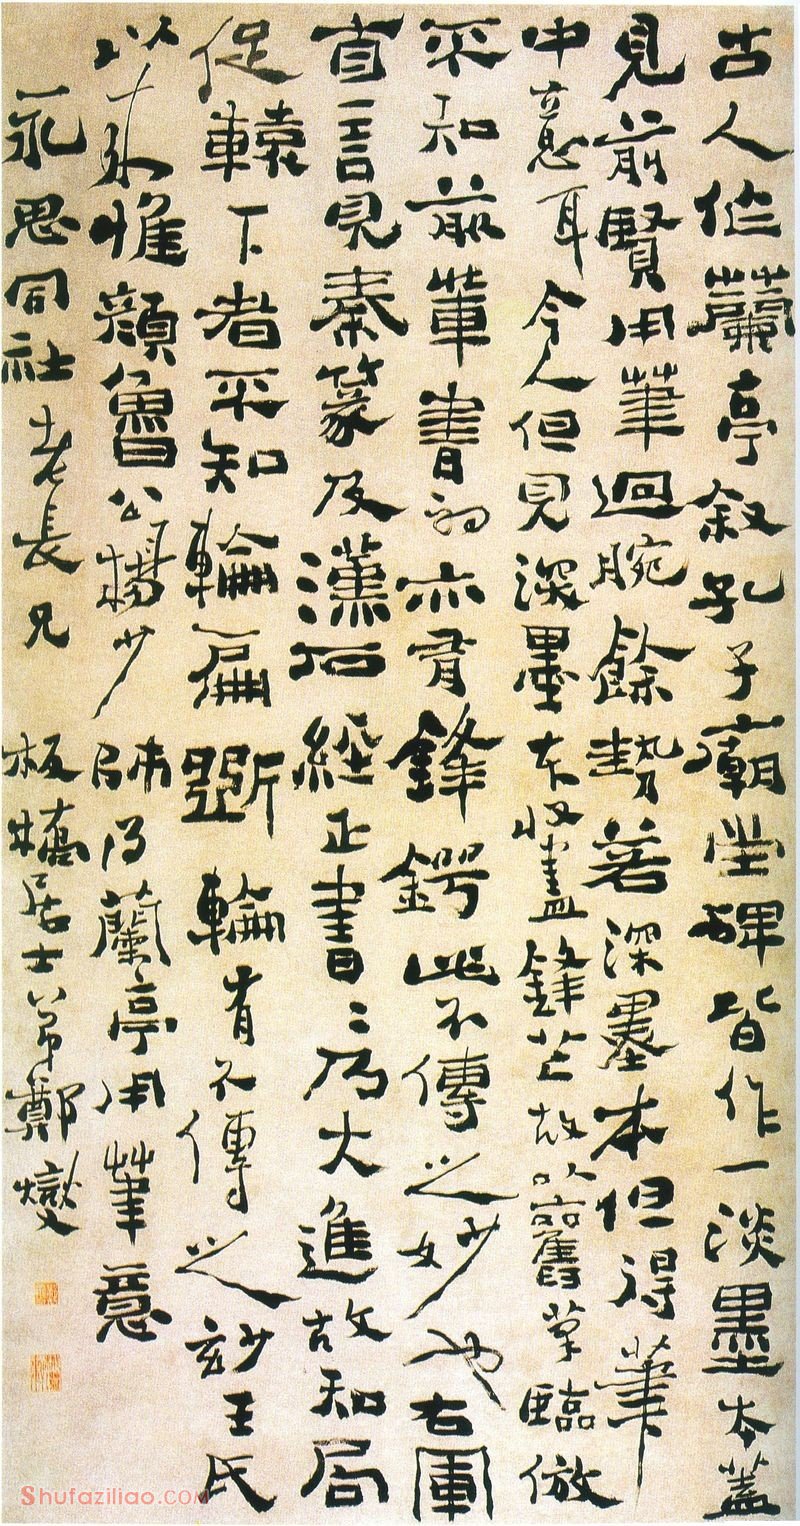 古人作蘭亭叙孔子廟堂碑皆作一淡墨本蓋
見前賢用筆迴腕餘勢若深墨本但得筆
中意耳今人但見深墨本收盡鋒芒故以舊筆臨倣
不知前輩書初亦有鋒鍔此不傳之妙也右軍
自言見秦篆及漢石經正書〻乃大進故知局
促轅下者不知輪扁斲輪有不傳之妙王氏
以來惟顔魯公楊少師得蘭亭用筆意
永思同社老長兄 板橋居士弟鄭燮
Shufaziliao.COM